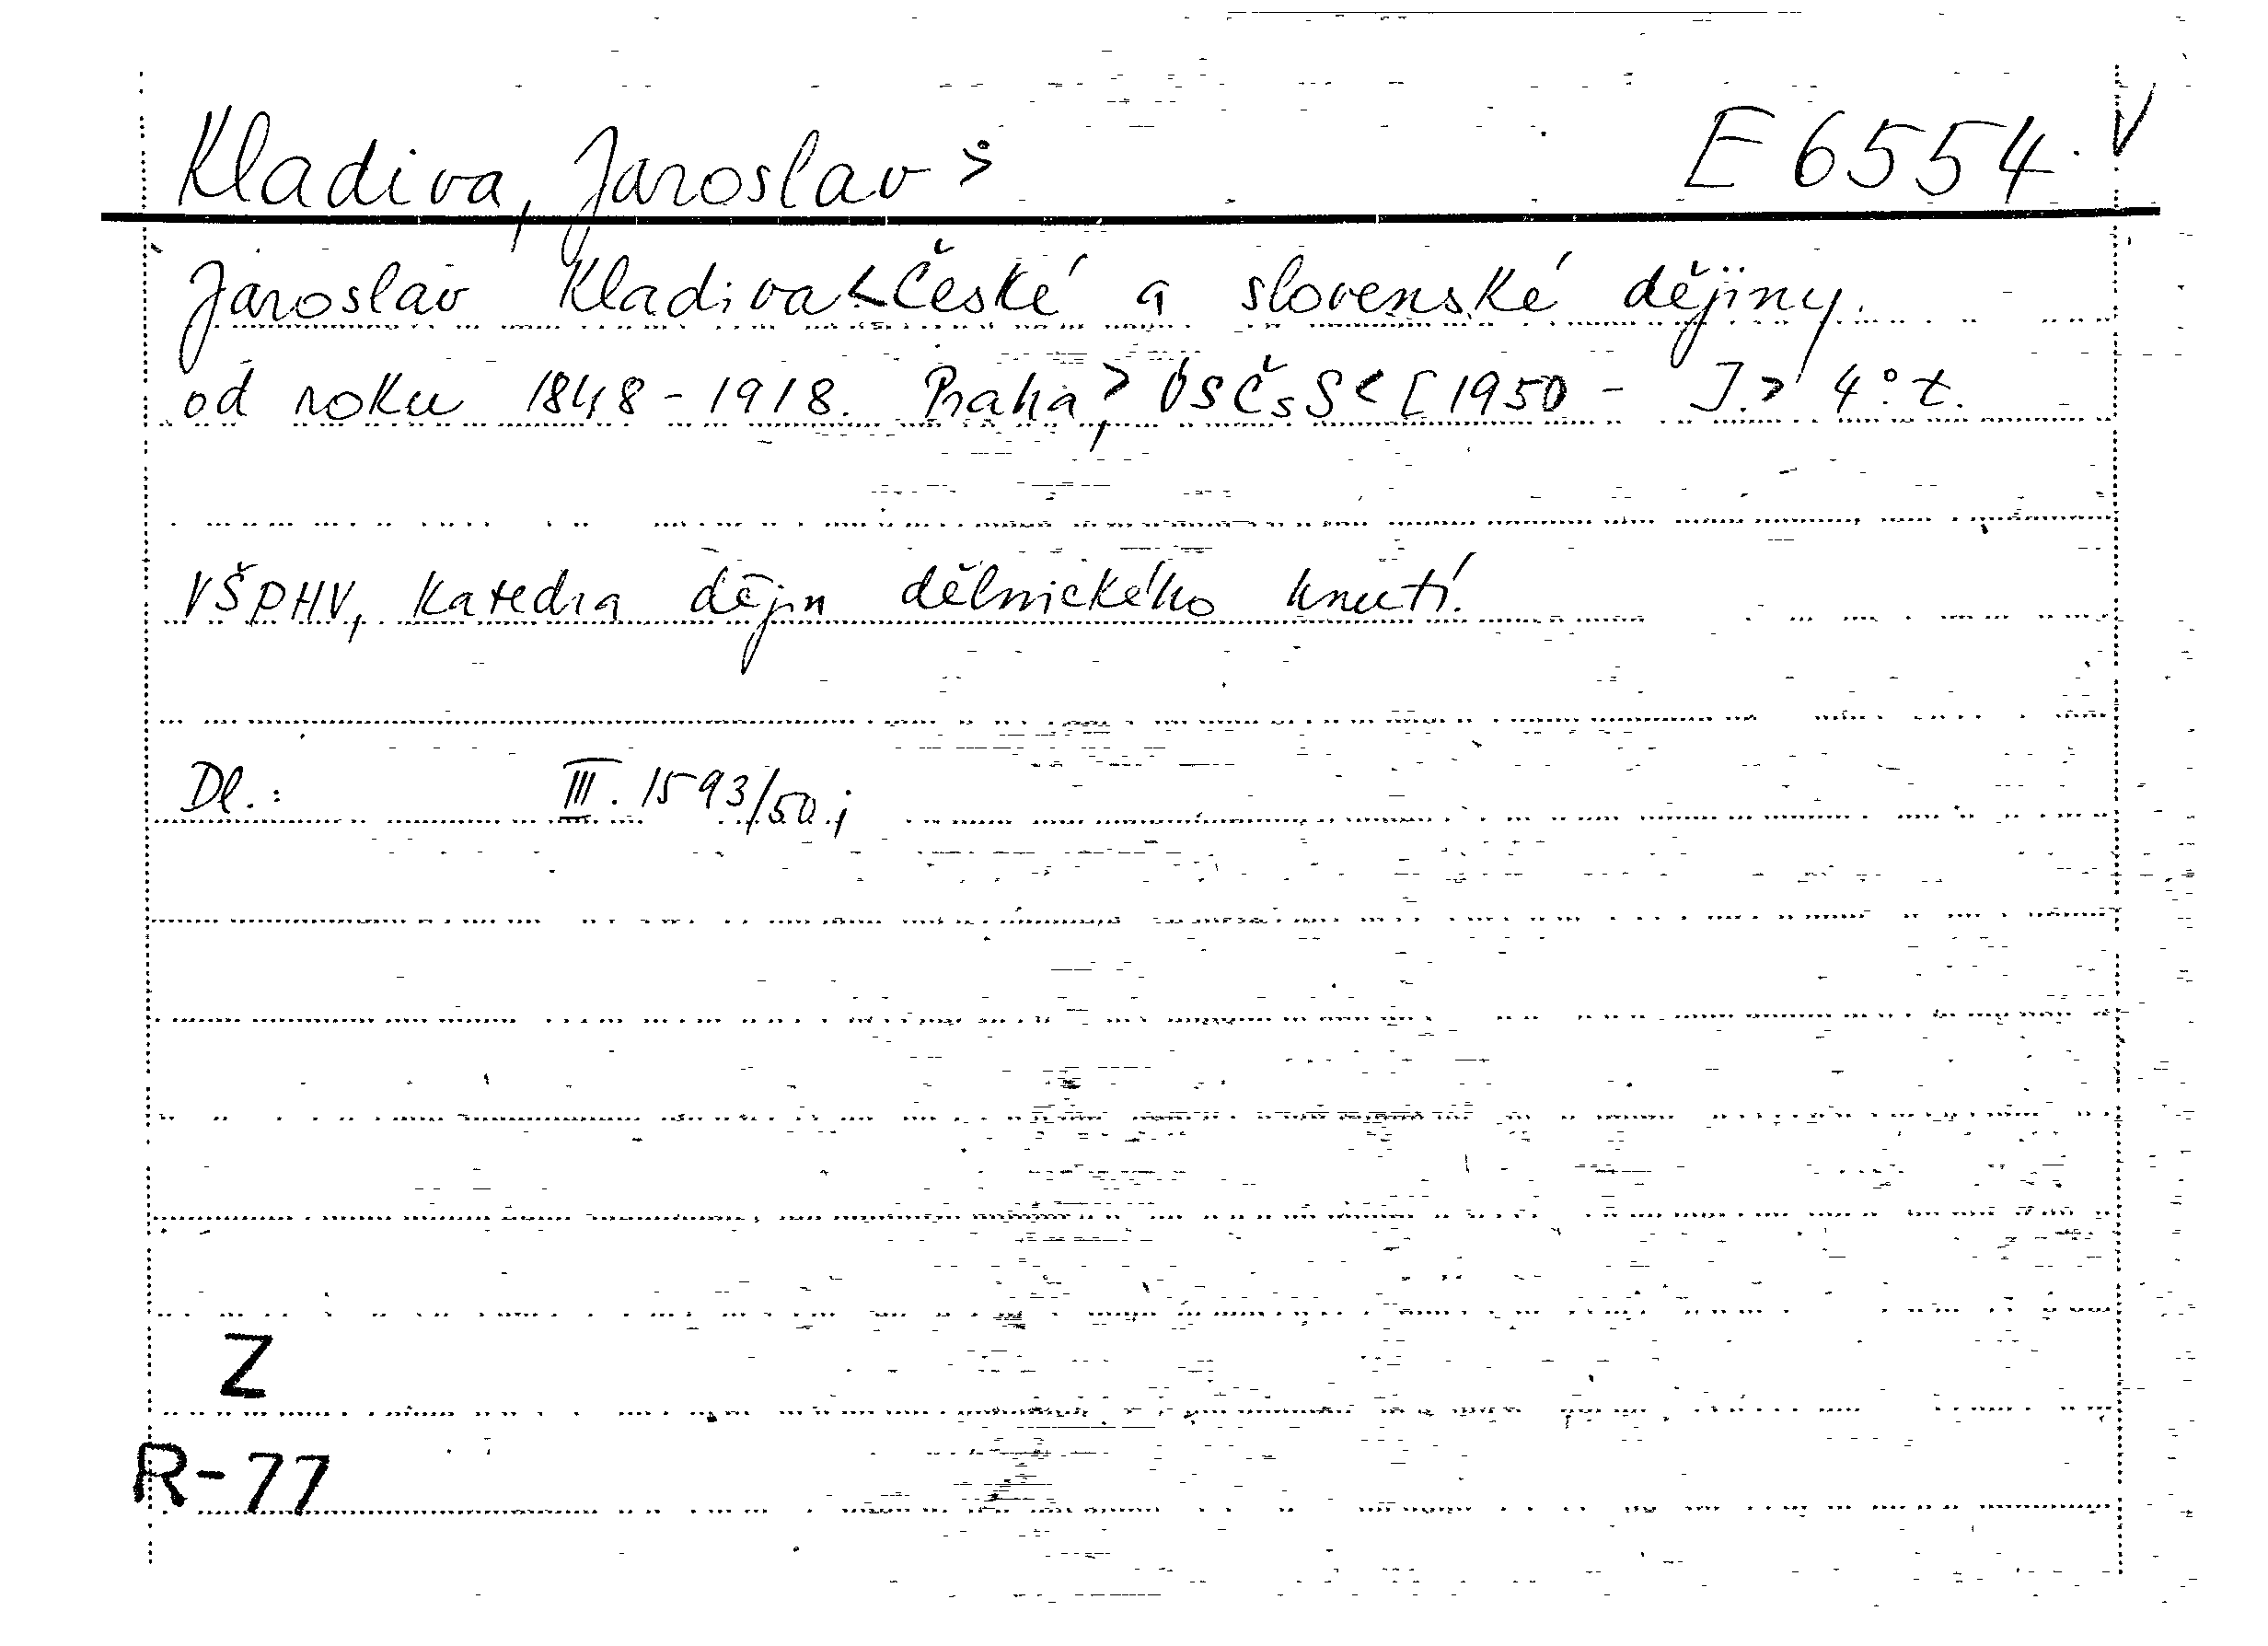 Kladiva, Jaroslav > E 6554. V
Jaroslav Kladiva < České a slovenské dějiny
od roku 1848-1918. Praha, > ÚSČsS < [1950 - ]. > 4° t.
VŠPHV, Katedra dějin dělnického hnutí.
Dl.: III. 1593/50.j
Z
R-77